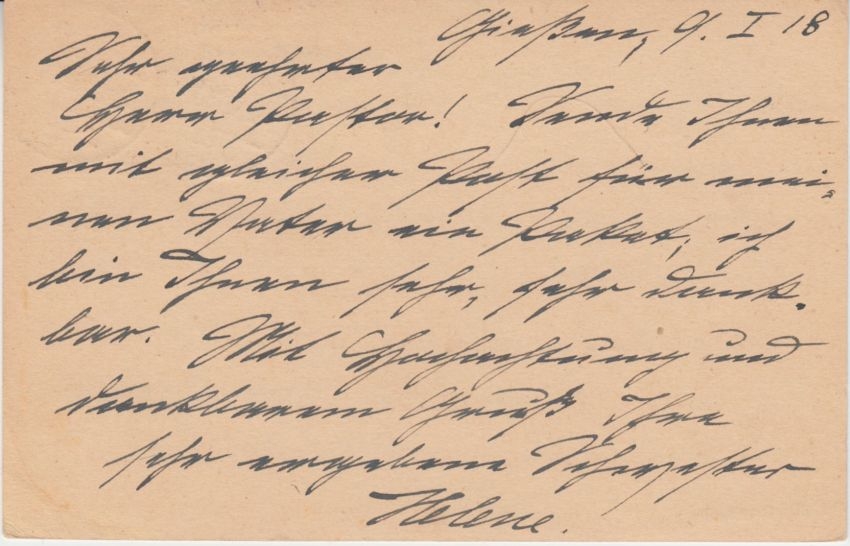 Gießen, 9. I 18
Sehr geehrter
Herr Pastor! Sende Ihnen
mit gleicher Post für mei-
nen Vater ein Paket; ich
bin Ihnen sehr, sehr dank-
bar. Mit Hochachtung und
dankbarem Gruß Ihre
sehr ergebene Schwester
Helene.